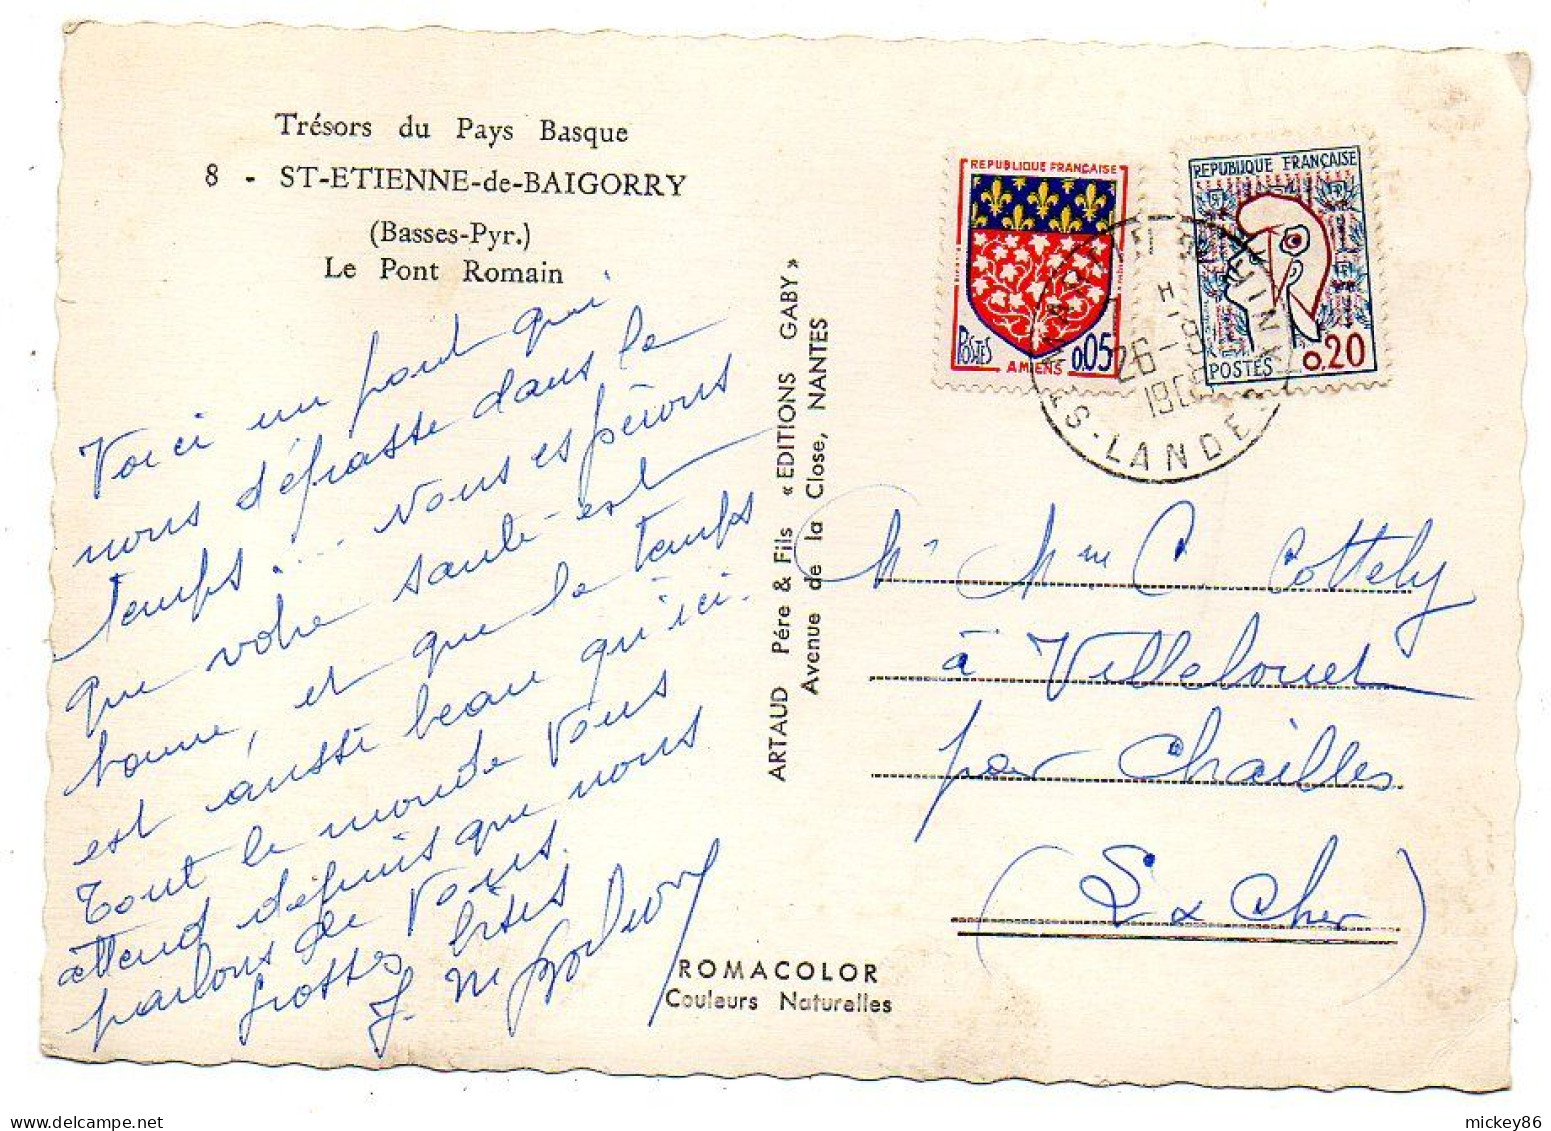 Trésors du Pays Basque
8 - ST-ETIENNE-de-BAIGORRY
(Basses-Pyr.)
Le Pont Romain
Voici un pont qui
nous dépasse dans le
temps... Nous espérons
que votre santé est
bonne, et que le temps
est aussi beau qu'ici.
Tout le monde vous
attend depuis que nous
parlons de vous.
Grosses bises
J. M
ARTAUD Pére & Fils « EDITIONS GABY »
Avenue de la Close, NANTES
ROMACOLOR
Couleurs Naturelles
REPUBLIQUE FRANÇAISE
POSTES 0,05
AMIENS
REPUBLIQUE FRANÇAISE
POSTES 0,20
26-9
S-LANDES
Mr Mme C. Cottely
à Villelouet
par Chailles
(L & Cher)
mickey86